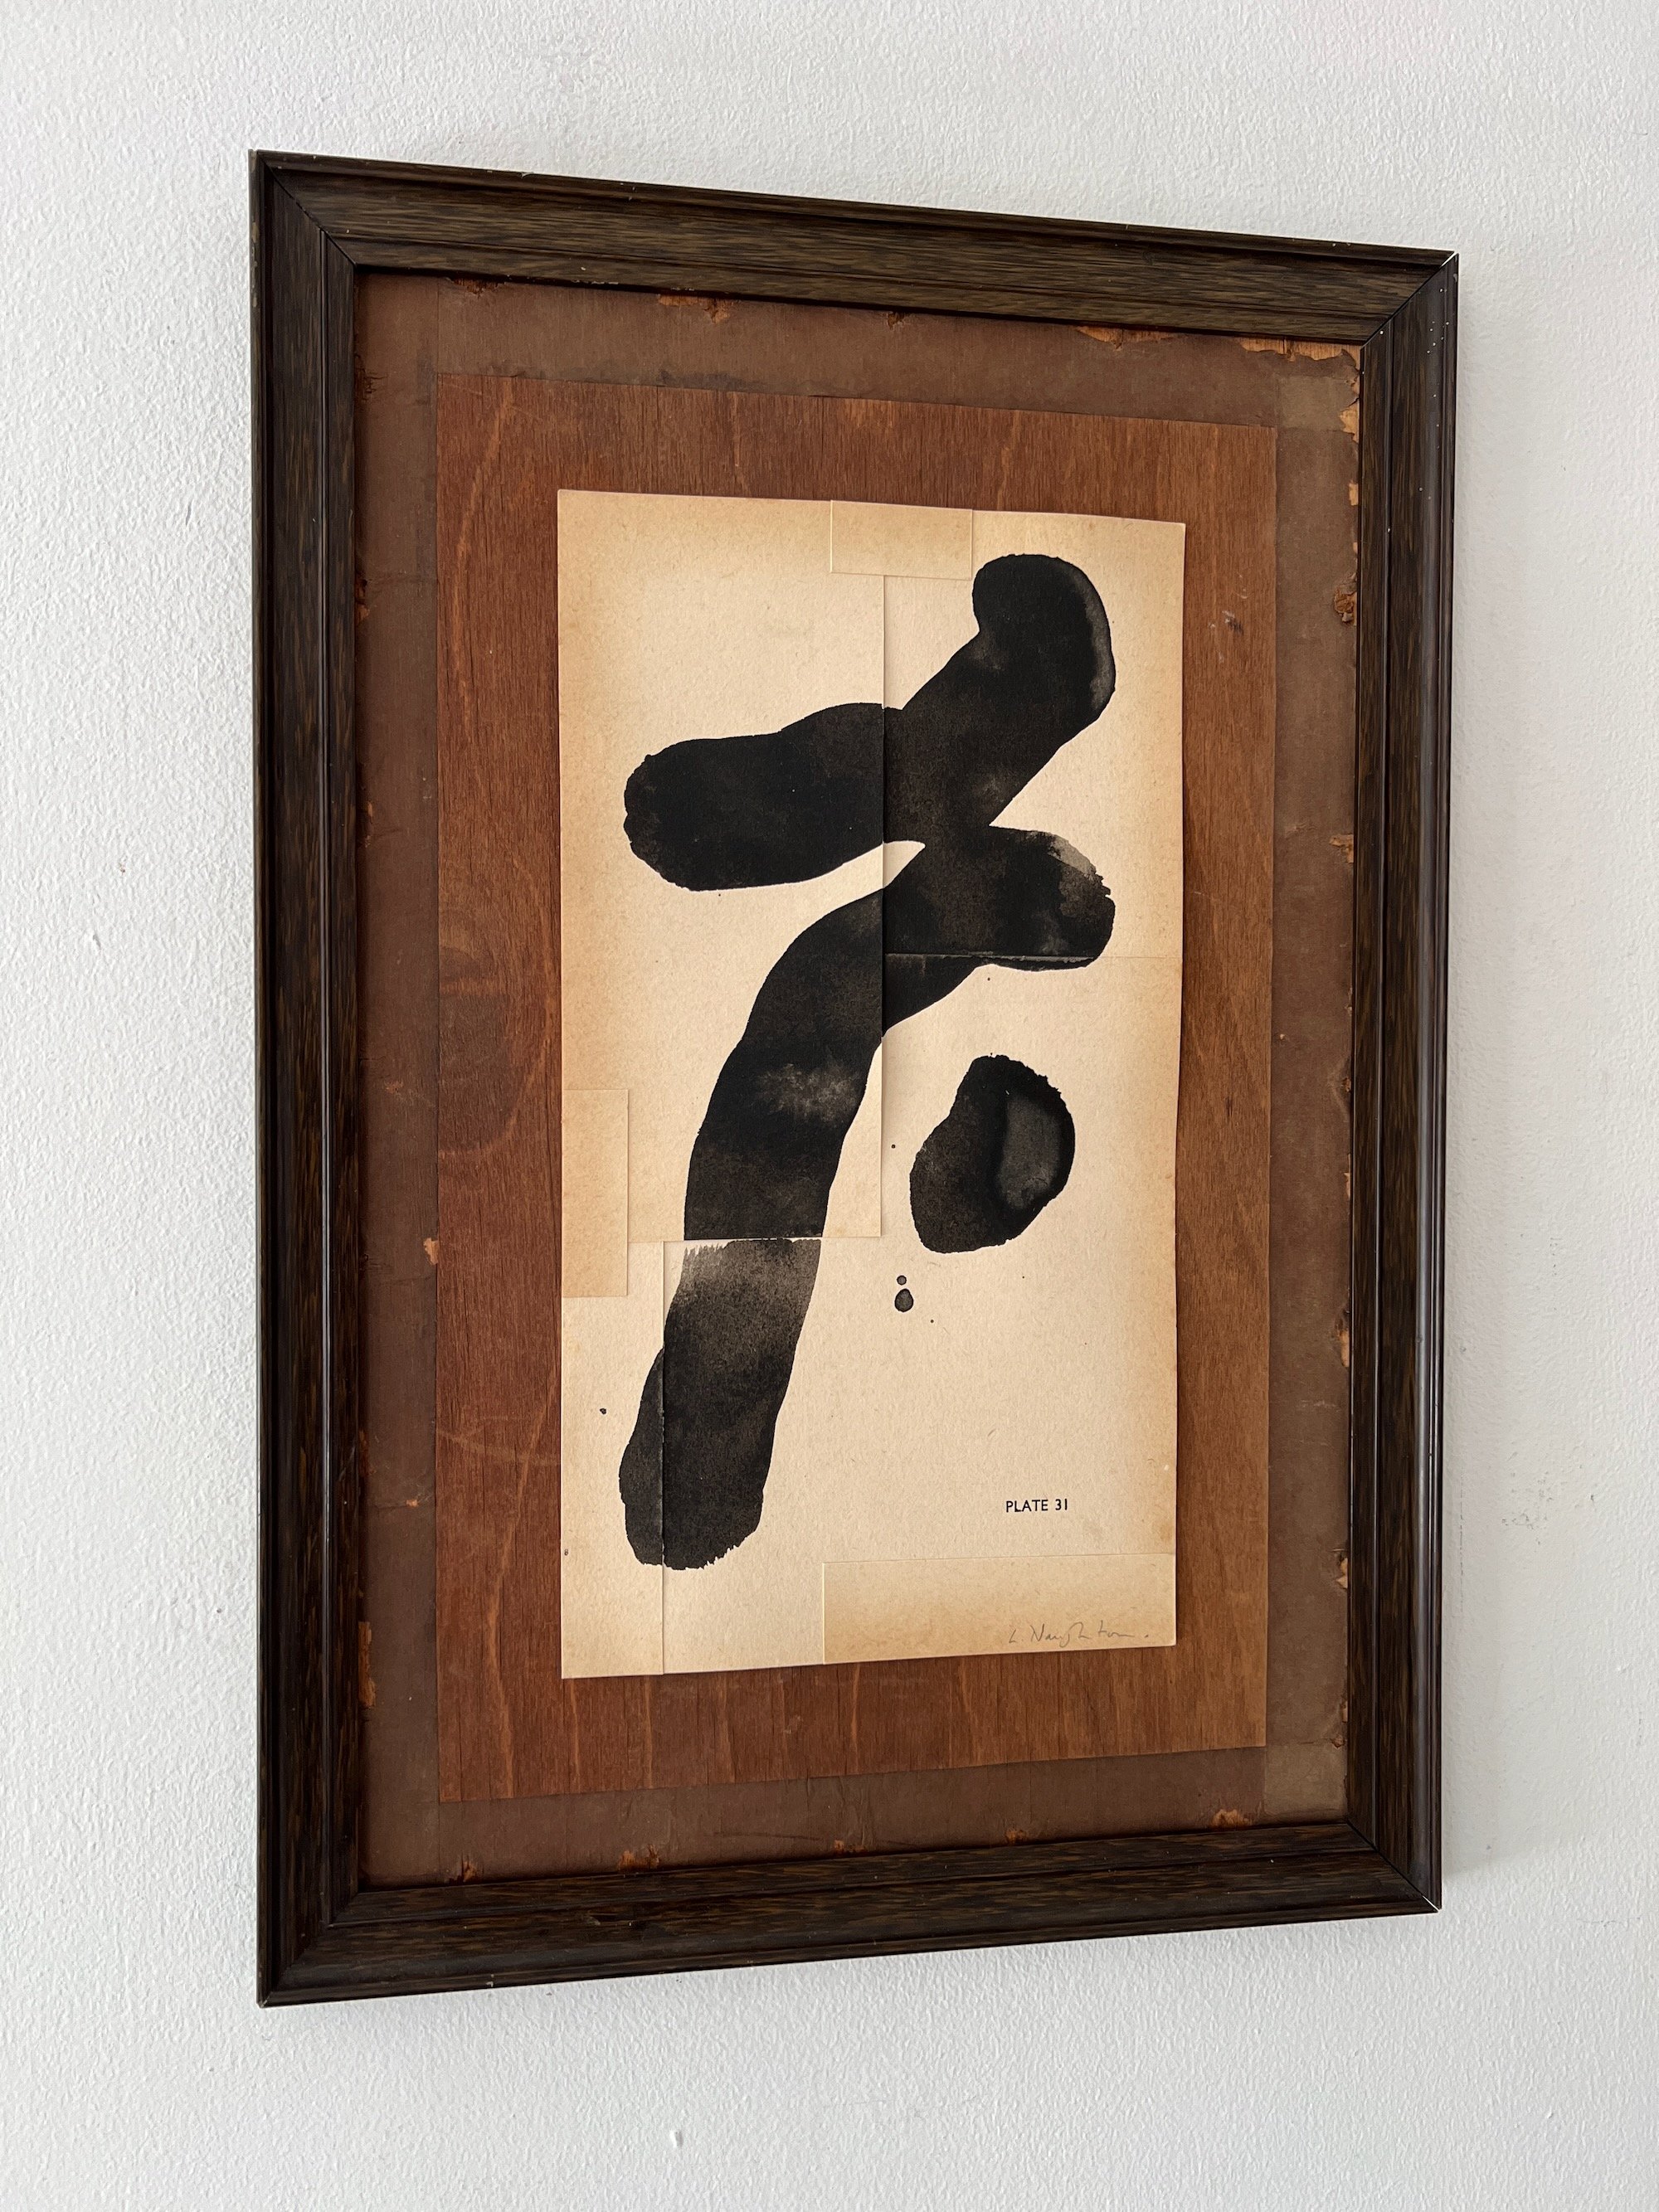 PLATE 31
L. Naughton.